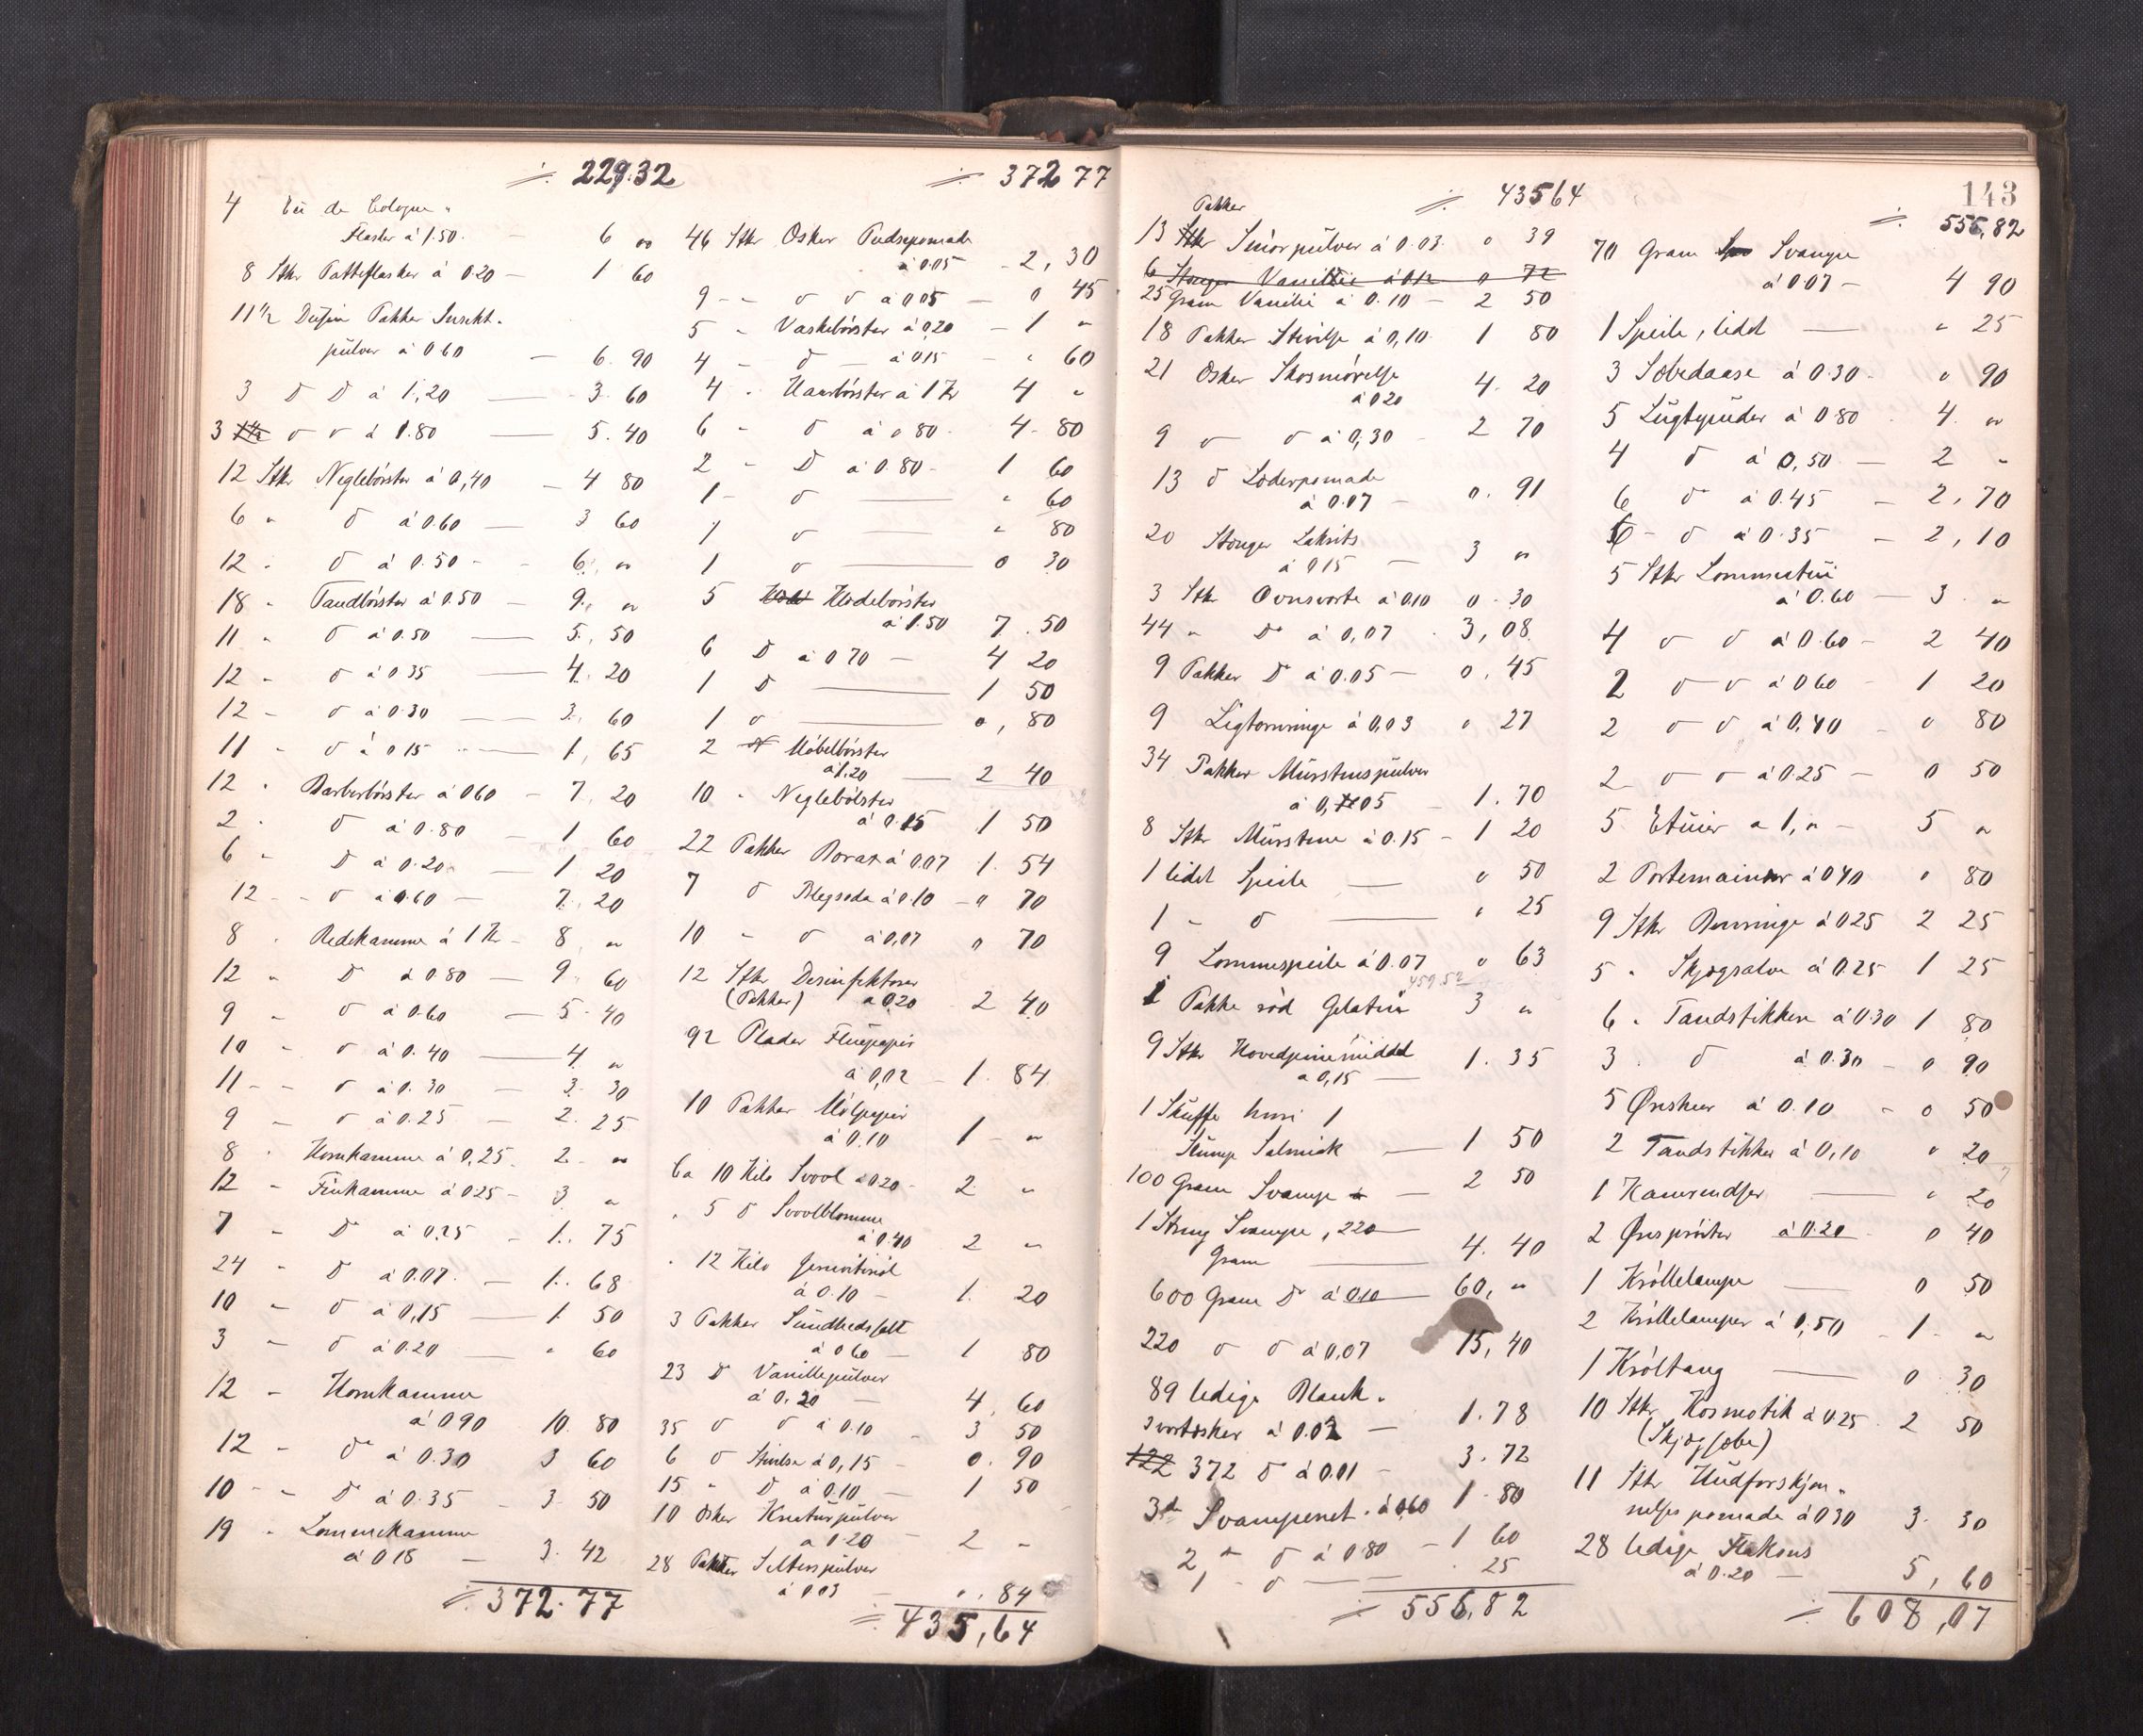 ⁒ 229.32
4 Eu de Cologne
Flasker á 1.50 - 6 "
8 Stkr Patteflasker á 0.20 - 1 60
11½ Dusin Pakker Insekt-
pulver á 0.60 - 6. 90
3 D D á 1,20 - 3. 60
3 D D á 1.80 - 5. 40
12 Stkr Neglebörster á 0,40 - 4 80
6 " D á 0.60 - 3 60
12 " D á 0.50 - 6. "
18 " Tandbörster á 0.50 - 9. "
11 " D á 0.50 - 5. 50
12 " D á 0.35 - 4. 20
12 " D á 0.30 - 3. 60
11 " D á 0.15 - 1, 65
12 " Barberbörster á 0.60 - 7. 20
2 " D á 0.80 - 1 60
6 " D á 0.20 - 1 20
12 " D á 0.60 - 7. 20
8 " Redekamme á 1 Kr - 8 "
12 " D á 0.80 - 9. 60
9 " D á 0.60 - 5. 40
10 " D á 0.40 - 4 "
11 " D á 0.30 - 3. 30
9 " D á 0.25 - 2. 25
8 " Hornkamme á 0,25 2 "
12 " Finkamme á 025 - 3 "
7 " D á 0.25 - 1. 75
24 " D á 0.07 - 1. 68
10 " D á 0,15 - 1 50
3 " D á 0.20 - " 60
12 " Hornkamme
á 0.90 10. 80
12 " D á 0.30 3 60
10 " D á 0.35 - 3 50
19 " Lommekamme
á 0.18 - 3. 42
⁒ 372.77
⁒ 372 77
46 Stkr Æsker Pudsepomade
á 0.05 - 2, 30
9 " D D á 0.05 - 0 45
5 " Vaskebörster á 0,20 - 1 "
4 " D á 0.15 - " 60
4 " Haarbörster á 1 Kr 4 "
6 " D á 0.80 - 4. 80
2 " D á 0.80 - 1 60
1 " D - " 60
1 D - " 80
1 D - 0 30
5 Klædebörster
á 1.50 7. 50
6 D á 0.70 - 4 20
1 D - 1 50
1 D - 0, 80
2 Möbelbörster
á 1.20 - 2 40
10 " Neglebörster
á 0.15 1 50
22 Pakker Borax á 0.07 1. 54
7 D Blegsoda á 0.10 - 0 70
10 " D á 0,07 0 70
12 Stkr Desinfektorer
(Pakker) á 0.20 - 2 40
92 Plader Fluepapir
á 0,02 - 1. 84
10 Pakker Mölpapir
á 0.10 1 "
Ca 10 Kilo Svovl á 0.20 - 2 "
" 5 D Svovlblomme
á 0.40 2 "
" 12 Kilo
á 0.10 - 1. 20
3 Pakker Sundhedssalt
á 0.60 - 1 80
23 D Vanillepulver
á 0.20 - 4. 60
35 D D á 0.10 - 3 50
6 D Stivelse á 0,15 - 0. 90
15 " D á 0.10 - 1 50
10 Æsker Kreaturpulver
á 0.20 - 2 "
28 Pakker Selterspulver
á 0.03 - 0. 84
⁒ 435,64
143
⁒ 43564
Pakker
13 Stkr Smörpulver á 0.03 0 39
6 Stænger Vanillie á 0.12 0 72
25 Gram Vanilie á 0.10 - 2 50
18 Pakker Stivelse á 0,10 1 80
21 Æsker Skosmörelse
á 0.20 4. 20
9 D D á 0,30 - 2 70
13 D Læderpomade
á 0.07 - 0. 91
20 Stænger Lakrits
á 0.15 - 3 "
3 Stk Ovnsværte á 0.10 0. 30
44 " D á 0,07 . 3, 08
9 Pakker D á 0.05 - 0. 45
9 Ligtornringe á 0,03 0 27
34 Pakker Murstenspulver
á 0,05 - 1. 70
8 Stk Murstene á 0.15 - 1 20
1 lidet Speile - 0 50
1 " D - " 25
9 Lommespeile á 0.07 0 63
459.52
1 Pakke röd Gelatin 3 "
9 Stkr Hovedpinemiddel
á 0,15 - 1. 35
1 Skuffe hvori 1
Klump Salmiak - 1 50
100 Gram Svampe - 2 50
1 Streng Svampe, 220
Gram - 4. 40
600 Gram D á 0.10 60, "
220 D D á 0,07 15, 40
89 ledige Blank-
sværtæsker á 0.02 - 1. 78
122 372 D á 0.01 - 3. 72
3 Svampenet á 0,60 1. 80
2 " D á 0.80 - 1 60
1 " D - . 25
⁒ 556,82
⁒ 556,82
70 Gram Svampe
á 0.07 - 4 90
1 Speile, lidet - " 25
3 Sæbedaase á 0.30 - 0 90
5 Lugtepuder á 0.80 . 4. "
4 D á 0,50 - 2 "
6 D á 0.45 - 2, 70
6 - D á 0.35 - 2, 10
5 Stkr Lommeetui
á 0.60 - 3. "
4 D D á 0.60 - 2 40
2 D D á 0.60 - 1 20
2 D D á 0,40 - 0 80
2 D D á 0.25 - 0 50
5 Etuier á 1," - 5 "
2 Portemainær á 0.40 0 80
9 Stkr Benringe á 0.25 2 25
5 " Skjægsalve á 0.25 1 25
6 " Tandstikkere á 0.30 1 80
3 " D á 0.30 - 0 90
5 Øreskeer á 0.10 - 0 50
2 Tandstikker á 0,10 0 20
1 Kamrendser - " 20
2 Øresprøiter á 0.20 0 40
1 Kröllelampe - 0 50
2 Kröllelamper á 0,50 - 1 - "
1 Kröltang - 0 30
10 Stkr Kosmotik á 0.25 . 2 50
(Skjægsæbe)
11 Stkr Hudforskjøn-
nelses pomade á 0.30 3. 30
28 ledige Flakons
á 0.20 - 5, 60
⁒ 608,07